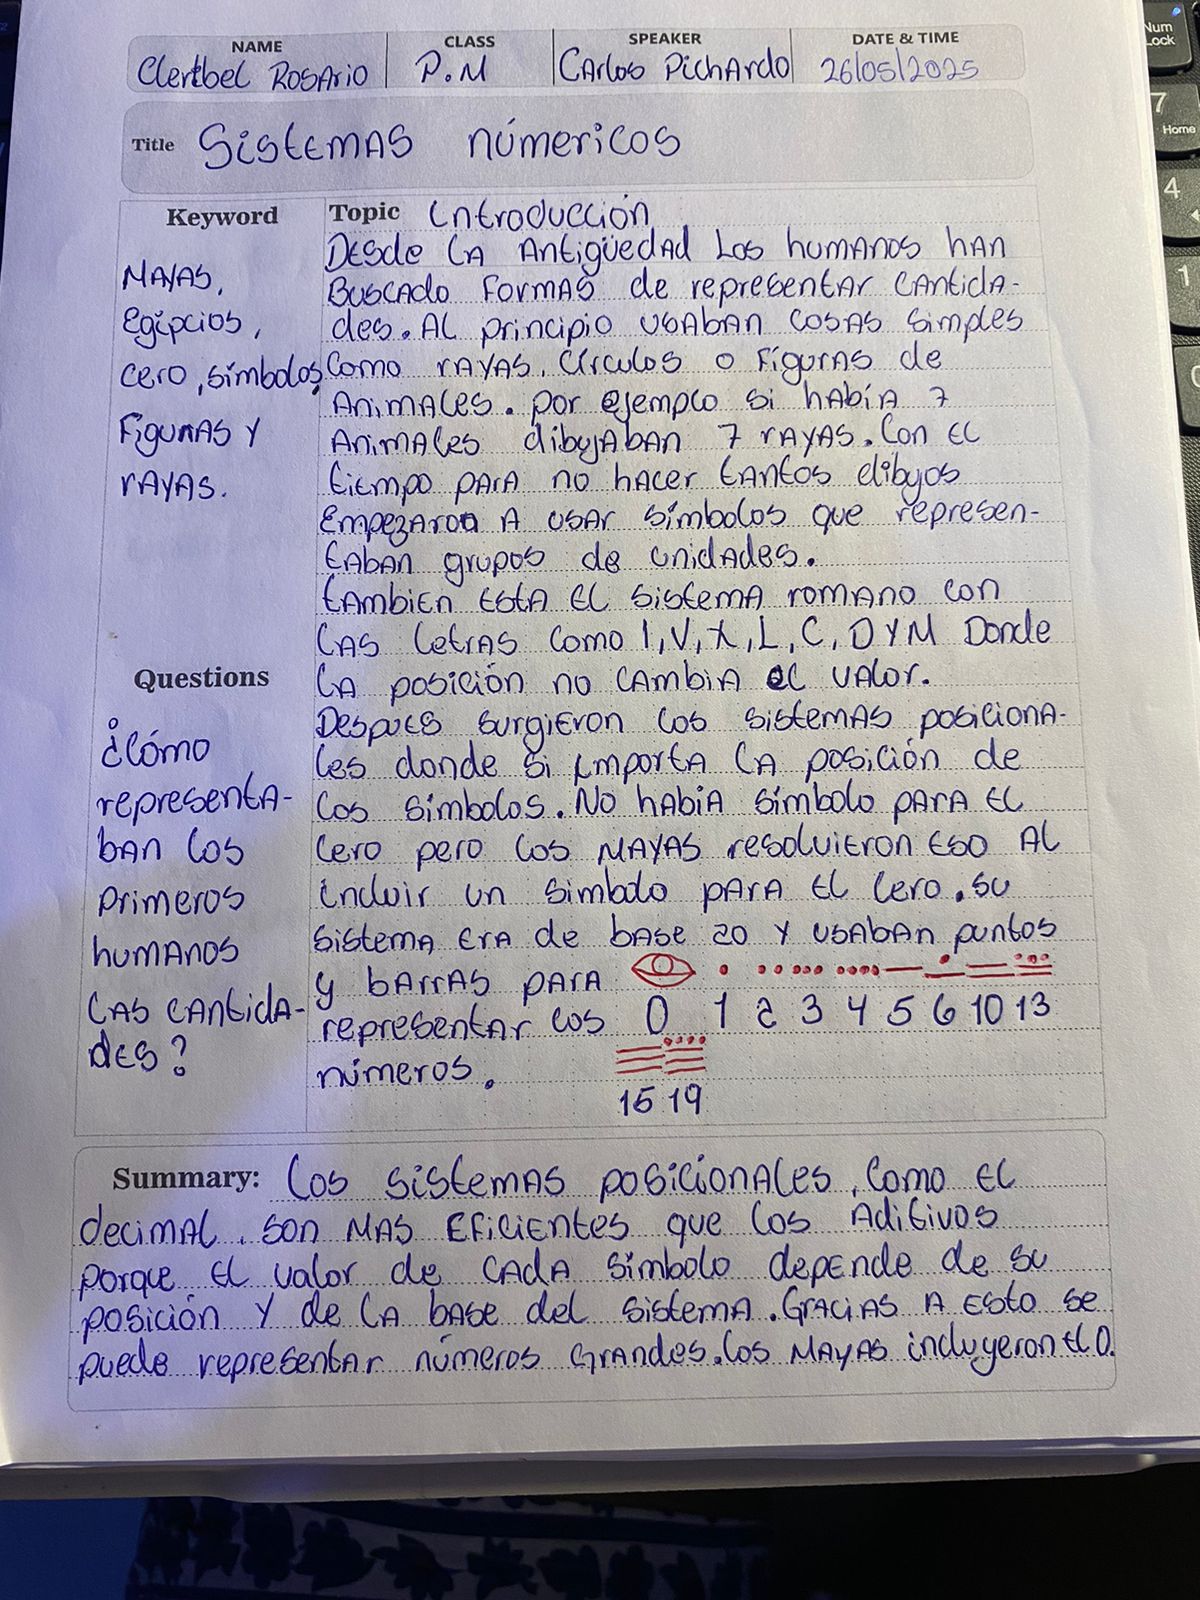 NAME CLASS SPEAKER DATE & TIME
Clertbel Rosario P.M Carlos Pichardo 26/05/2025
Title Sistemas númericos
Keyword
Mayas,
Egipcios,
cero, símbolos,
Figuras y
rayas.
Questions
¿Cómo
representa-
ban los
primeros
humanos
las cantida-
des?
Topic Introducción
Desde la antigüedad los humanos han
buscado formas de representar cantida-
des. Al principio usaban cosas simples
como rayas, círculos o figuras de
animales. por ejemplo si había 7
animales dibujaban 7 rayas. Con el
tiempo para no hacer tantos dibujos
Empezaron a usar símbolos que represen-
taban grupos de unidades.
tambien esta el sistema romano con
las letras como I, V, X, L, C, D y M Donde
la posición no cambia el valor.
Despues surgieron los sistemas posiciona-
les donde si importa la posición de
los símbolos. No había símbolo para el
cero pero los mayas resolvieron eso al
incluir un símbolo para el cero. su
sistema era de base 20 y usaban puntos
y barras para
representar los
números.
0 1 2 3 4 5 6 10 13
15 19
Summary: Los sistemas posicionales, como el
decimal, son mas eficientes que los aditivos
porque el valor de cada símbolo depende de su
posición y de la base del sistema. Gracias a esto se
puede representar números grandes. los mayas incluyeron el 0.
Num
Lock
7
Home
4
1